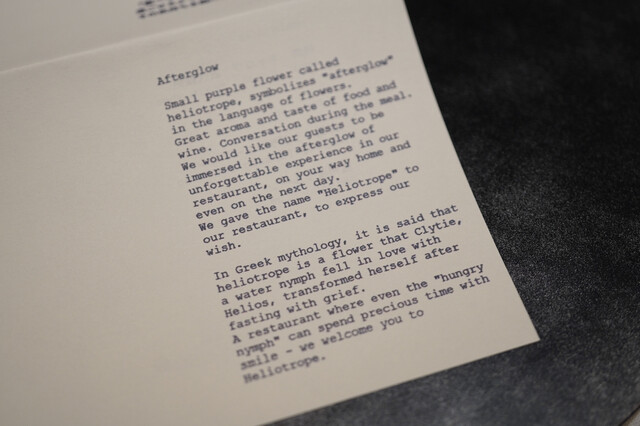 Afterglow
Small purple flower called
heliotrope, symbolizes "afterglow"
in the language of flowers.
Great aroma and taste of food and
wine. Conversation during the meal.
We would like our guests to be
immersed in the afterglow of
unforgettable experience in our
restaurant, on your way home and
even on the next day.
We gave the name "Heliotrope" to
our restaurant, to express our
wish.
In Greek mythology, it is said that
heliotrope is a flower that Clytie,
a water nymph fell in love with
Helios, transformed herself after
fasting with grief.
A restaurant where even the "hungry
nymph" can spend precious time with
smile - we welcome you to
Heliotrope.